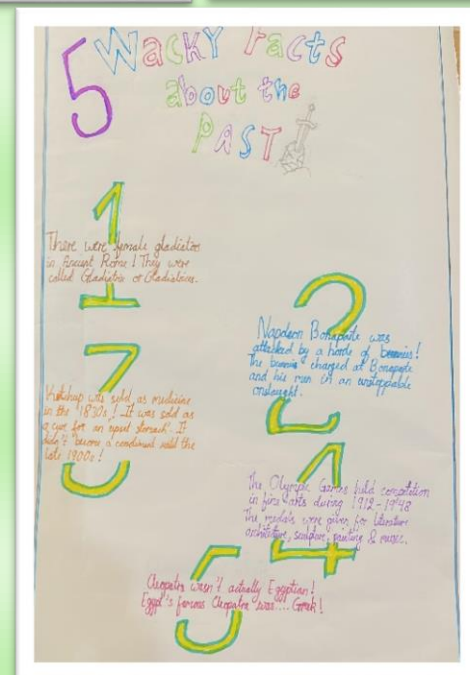 5 Wacky Facts
about the
PAST!
1
There were female gladiators
in Ancient Rome! They were
called Gladiatrix or Gladiatrices.
2
Napoleon Bonaparte was
attacked by a horde of bunnies!
The bunnies charged at Bonaparte
and his men in an unstoppable
onslaught.
3
Ketchup was sold as medicine
in the 1830s! It was sold as
a cure for an upset stomach. It
didn't become a condiment until the
late 1900s!
4
The Olympic Games held competition
in fine arts during 1912-1948
The medals were given for literature
architecture, sculpture, painting & music.
5
Cleopatra wasn't actually Egyptian!
Egypt's famous Cleopatra was.... Greek!